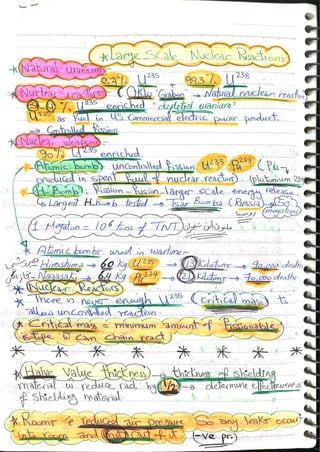 *Large Scale Nuclear Reactions
* Natural uranium
0.7% U235 + 99.3% U238
* Nuclear reactor (Oklo "Gabon → Natural nuclear reactor
% U235 enriched "depleted uranium"
U235 as fuel in US commercial electric power product.
→ Controlled fission
* Nuclear weapons
90% U235 enriched
→ Atomic bomb: uncontrolled fission U235 Pu (Pu →
produced in spent fuel of nuclear reactor). (plutonium 239)
→ H-Bomb: Fission - Fusion - larger scale energy release
↳ Largest H.bomb tested → Tsar Bomba (Russia) → (50 megatons)
1 Megaton = 10⁶ tons of TNT
* Atomic bombs used in wartime:-
Hiroshima → 60 kg U235 → 15 Kilotons → 90,000 deaths
Nagasaki → 6.4 kg → 21 Kiloton → 70,000 deaths
* Nuclear Reactors
* There is never enough U235 (critical mass) to
allow uncontrolled reaction
* Critical mass = minimum amount of Fissionable
isotope chain react
* * * * * * * *
* Halve Value thickness → thickness of shielding
material reduce rad by 1/2 → determine effectiveness
of shielding material.
* Rooms reduced air pressure So any leaks occur
into room and not out of it (-ve pr.)